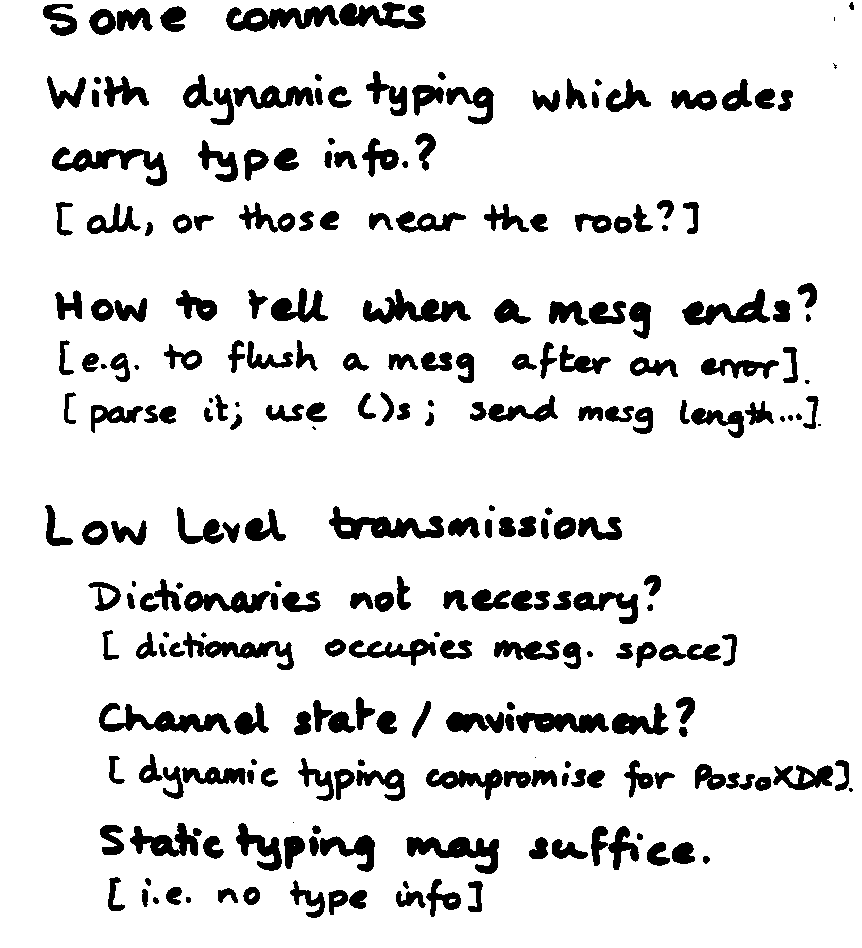 Some comments
With dynamic typing which nodes
carry type info.?
[all, or those near the root?]
How to tell when a mesg ends?
[e.g. to flush a mesg after an error].
[parse it; use ()s; send mesg length...].
Low Level transmissions
Dictionaries not necessary?
[dictionary occupies mesg. space]
Channel state / environment?
[dynamic typing compromise for PossoXDR].
Static typing may suffice.
[i.e. no type info]